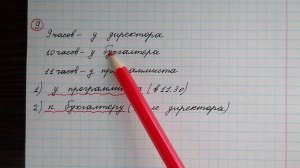 9
9 часов - у директора
10 часов - у бухгалтера
11 часов - у программиста
1) у программиста (в 11.30)
2) к бухгалтеру (после директора)